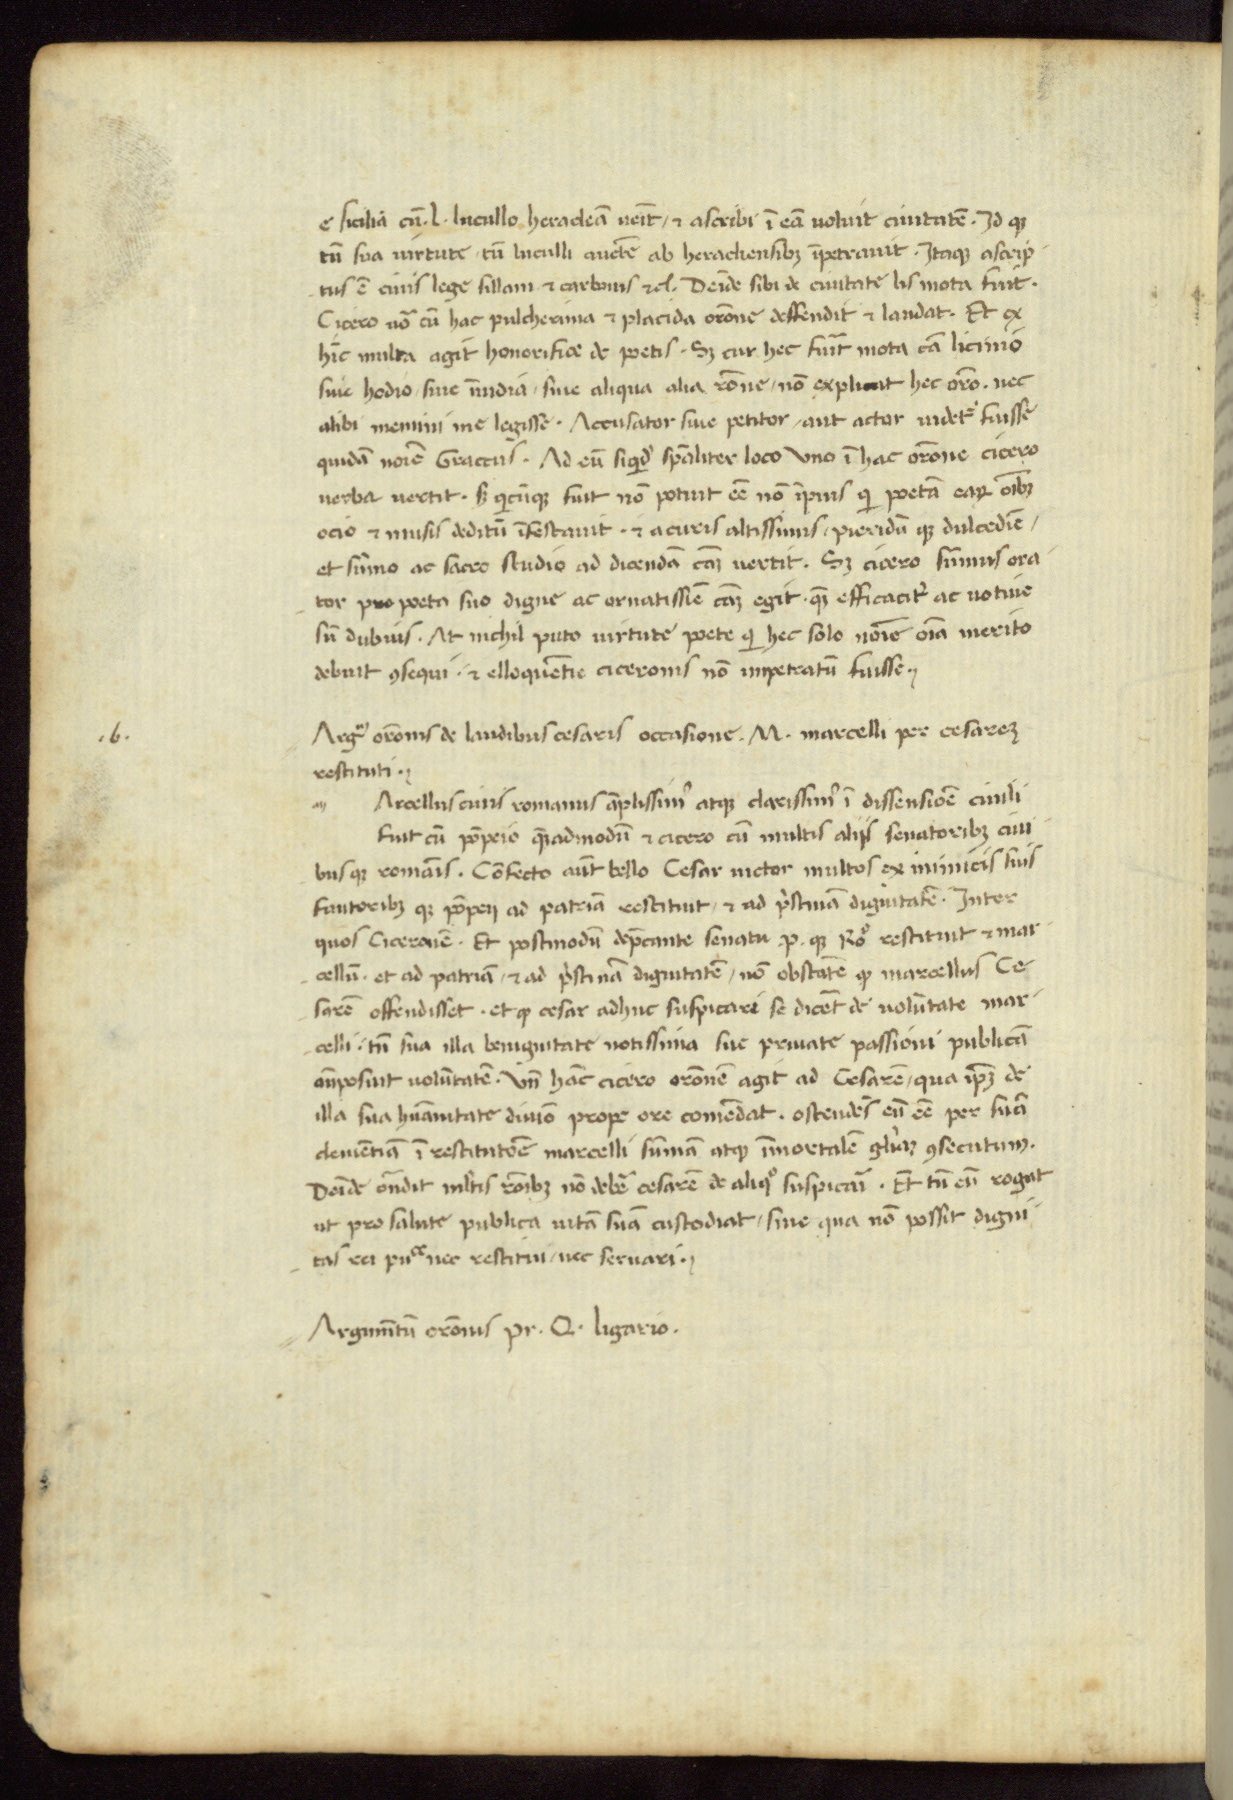 e sicilia cū. l. lucullo heracleā uēit / ⁊ ascribi ī eā uoluit ciuitatē. Id qꝫ
tū sua uirtute / tū luculli auctē ab heracliensibꝫ īpetrauit. Itaqꝫ ascrip
tus ē ciuis lege sillani ⁊ carbonis ⁊cl. Deīde sibi de ciuitate lis mota fuit.
Cicero uō cū hac pulcherima ⁊ placida orōne deffendit ⁊ laudat. Et ex
hīc multa agit honorifice de poetis. Sꝫ cur hec fuīt mota cā licinio
siue hodio / siue īuidiā / siue aliqua alia rōne / nō explicat hec orō. nec
alibi memini me legisse. Accusator siue petitor / aut actor uidet᷑ fuisse
quidā noīe Graccus. Ad eū siqͥdē spāliter loco uno ī hac orōne cicero
uerba uertit. qͥcūqꝫ fuit nō potuit eē nō īpius qͥ poetā oībꝫ
ocio ⁊ musis deditū īfestauit. ⁊ a curis altissimis / pieridū qꝫ dulcedīe /
et sūmo ac sacro studio ad dicendā cāꝫ uertit. Sꝫ cicero sūmus ora
tor pro poeta suo digne ac ornatissīe cāꝫ egit. qꝫ efficacit᷑ ac uotiue
sū dubius. At nichil puto uirtute poete qͥ hec solo noīe oīa merito
debuit ꝯsequi. ⁊ elloquētie ciceronis nō impetratū fuisse.
.6.
Argᵐ orōnis de laudibus cesaris occasione. M. marcelli per cesareꝫ
restituti.
m Arcellus ciuis romanus āplissimꝰ atqꝫ clarissimꝰ ī dissensiōe ciuili
fuit cū pōpeio quēadmodū ⁊ cicero cū multis alijs senatoribꝫ ciui
bus qꝫ romāis. Cōfecto aūt bello Cesar uictor multos ex inimicis suis
fautoribꝫ qꝫ pōpeij ad patriā restituit / ⁊ ad pͥstinā dignitatē. Inter
quos Ciceronē. Et postmodū dep̄cante senatu .p. qꝫ Roͦ restituit ⁊ mar
cellū. et ad patriā / ⁊ ad pͥstinā dignitatē / nō obstāte ꝙ marcellus Ce
sarē offendisset. et ꝙ cesar adhuc suspicari se dicēt de uolūtate mar
celli. tū sua illa benignitate notissima sue priuate passioni publicā
āteposuit uolūtatē. Vn̄ hāc cicero orōnē agit ad Cesarē / qua ipꝫ de
illa sua hūanitate diuīo prope ore comēdat. ostēdēs eū eē per suā
clemētiā ī restitutiōe marcelli sūmā atqꝫ īmortalē gloriāꝫ ꝯsecutum.
Deīde ōndit multis rōnibꝫ nō debē cesarē de aliqͦ suspicāi. Et tū eū rogat
ut pro salute publica uitā suā custodiat / sine qua nō possit digni
tas rei puᶜᵉ nec restitui / nec seruari.
Argumētū orōnis pr. Q. ligario.